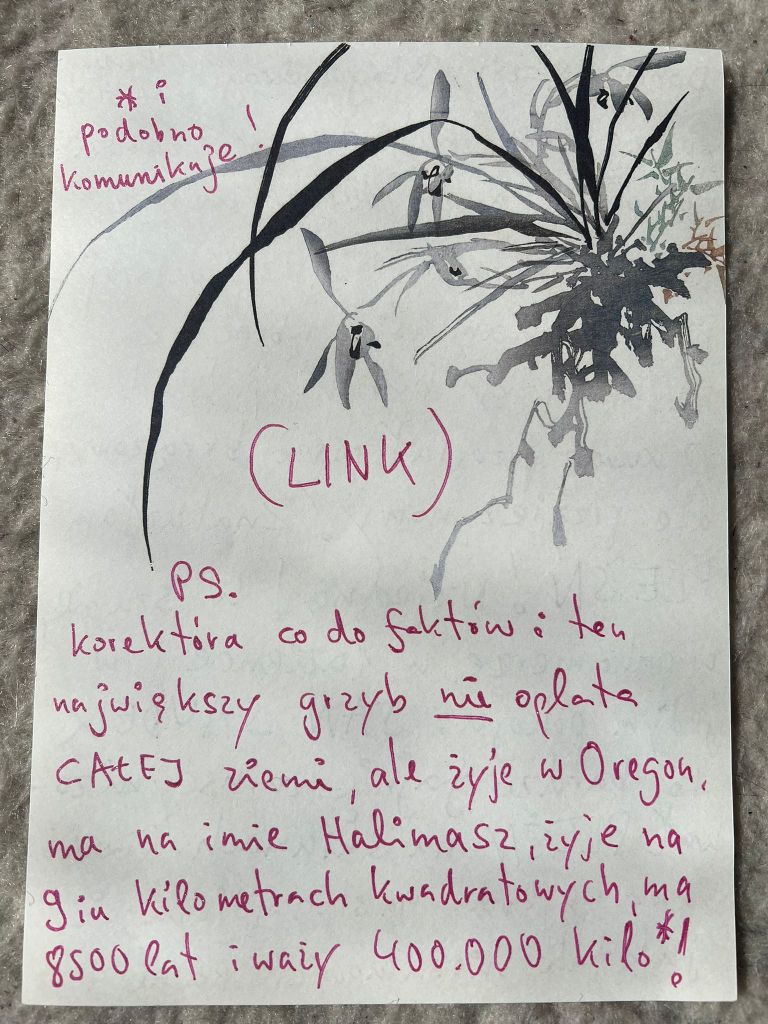 * i
podobno
komunikuje!
(LINK)
PS.
korektóra co do faktów: ten
największy grzyb nie oplata
CAŁEJ ziemi, ale żyje w Oregon,
ma na imie Halimasz, żyje na
9iu kilometrach kwadratowych, ma
8500 lat i waży 400.000 kilo*!